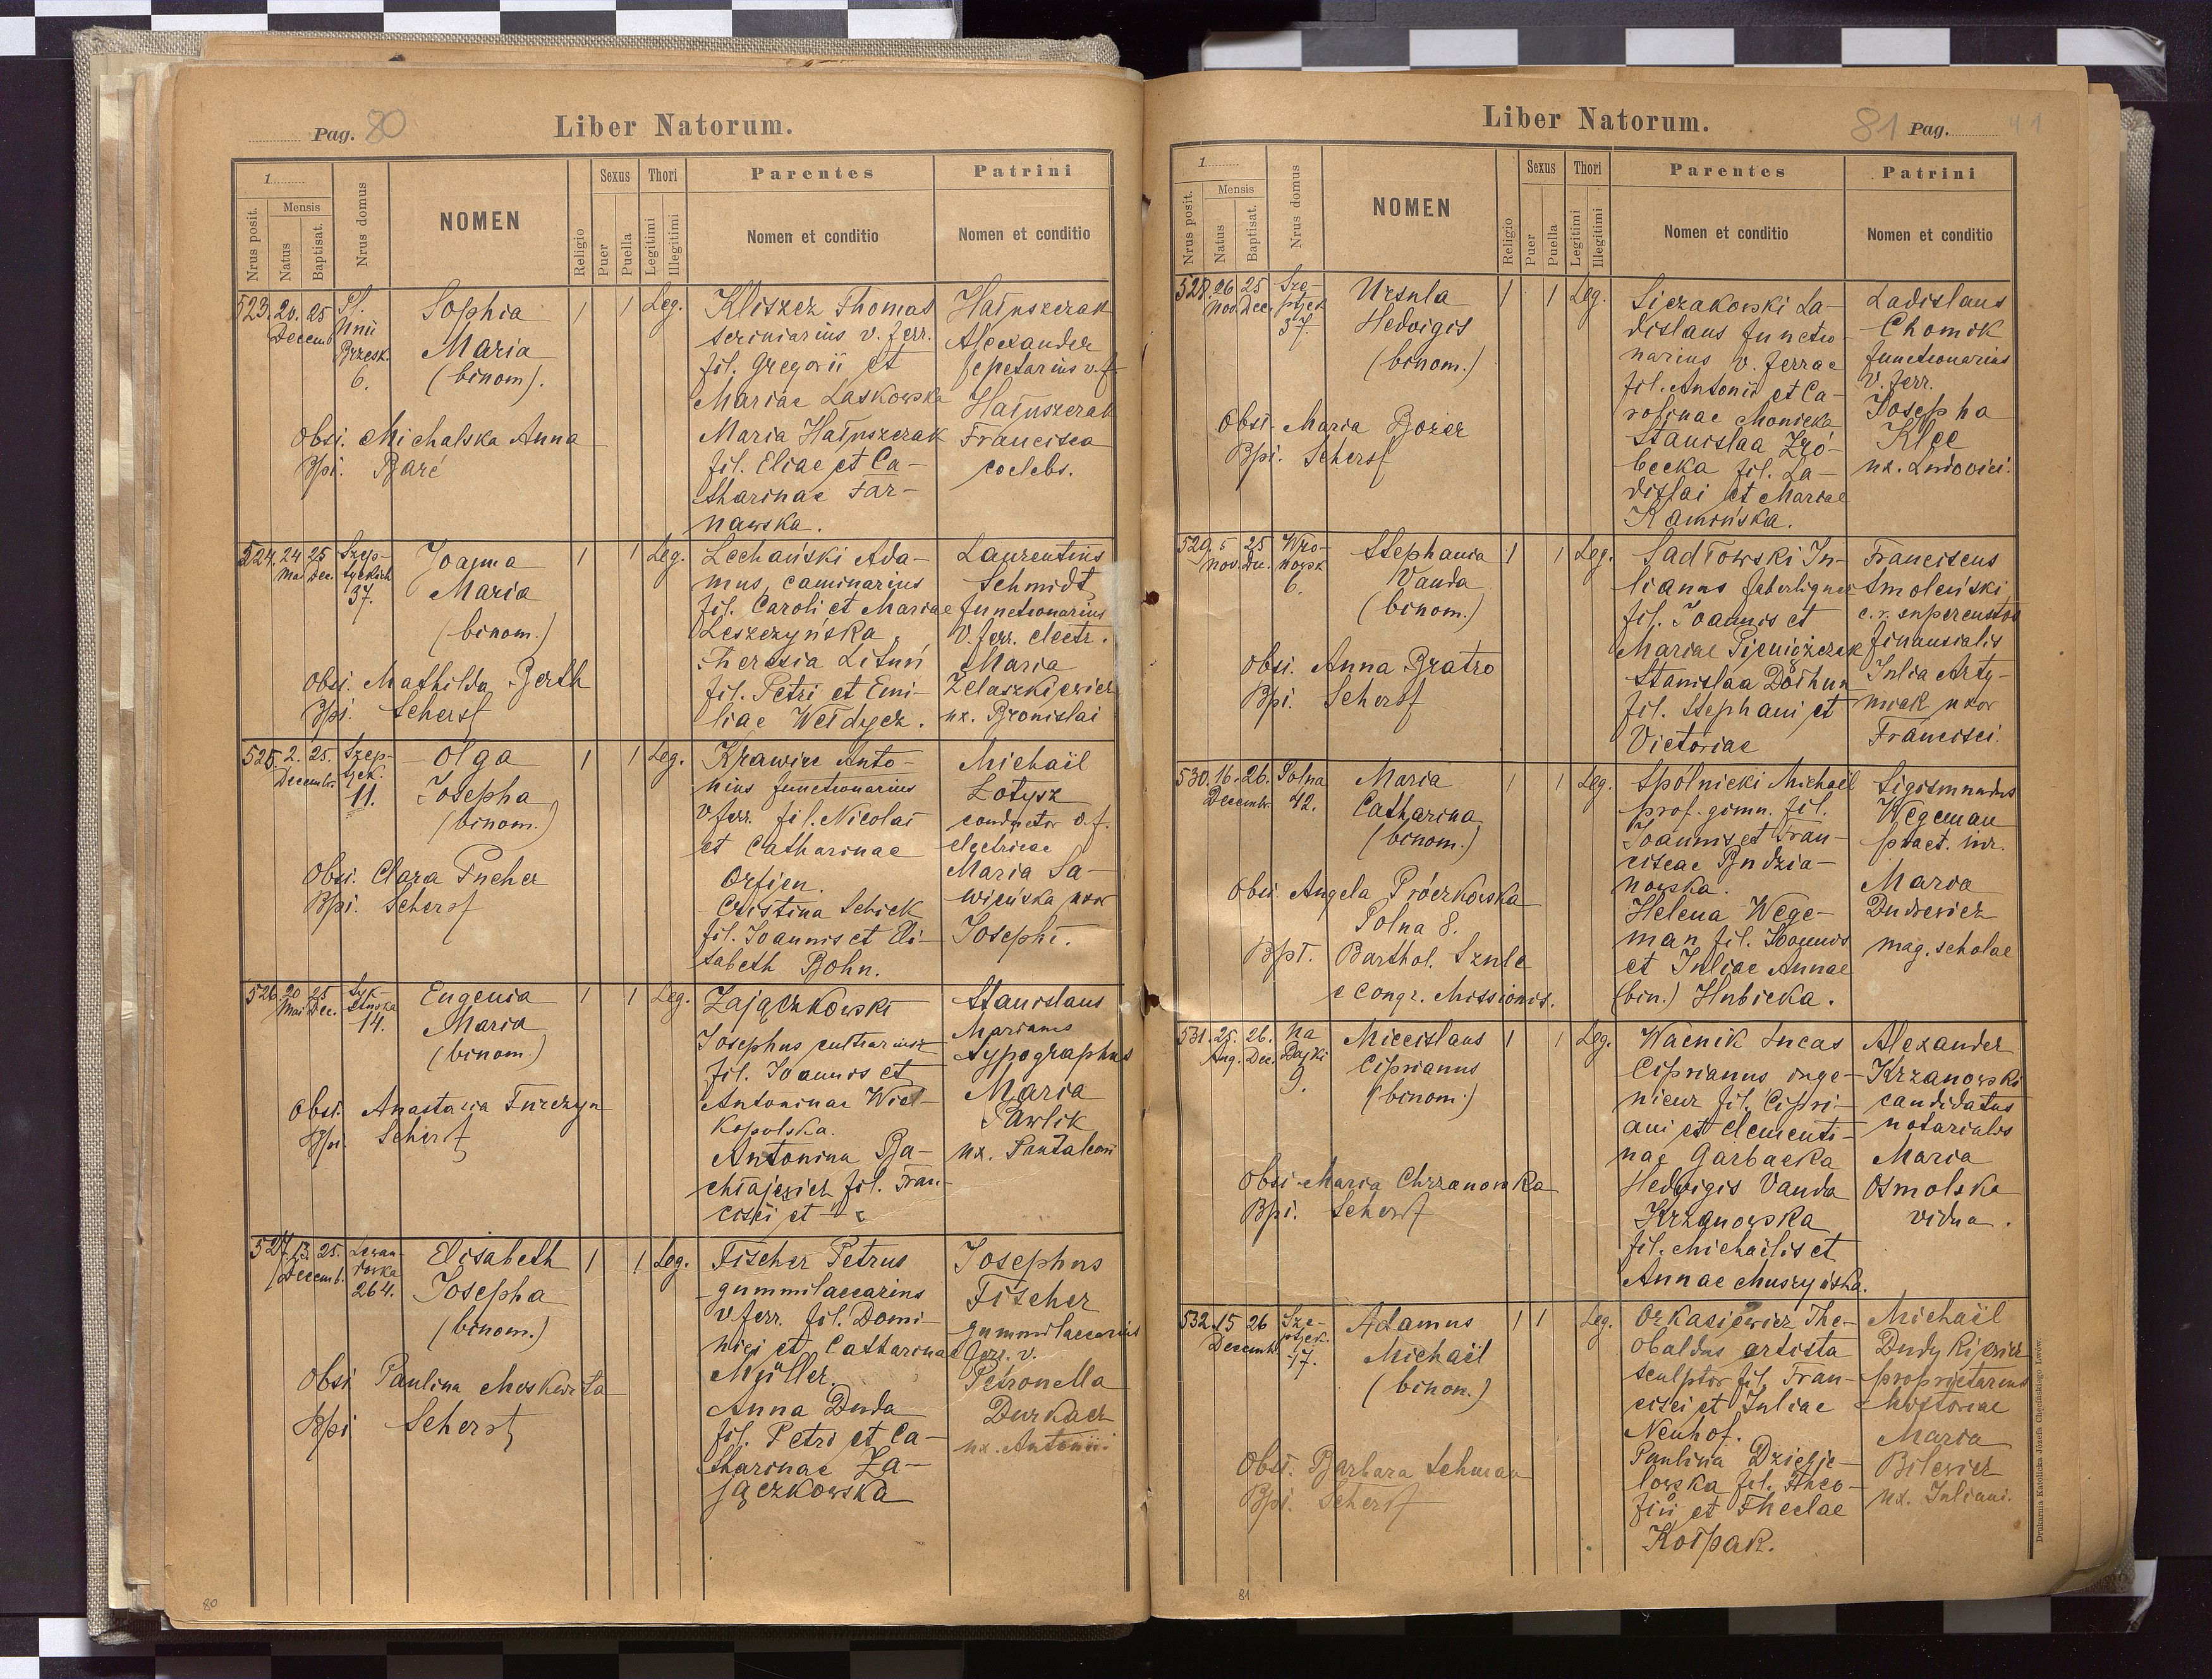 Pag. 80
Liber Natorum.
1
Nrus posit.
Mensis
Natus
Baptisat.
Nrus domus
NOMEN
Religio
Sexus
Puer
Puella
Thori
Legitimi
Illegitimi
Parentes
Nomen et conditio
Patrini
Nomen et conditio
523. 20. 25 Pl.
Decemb Unii
Brzesk.
6.
Sophia
Maria
(binom).
1 1 Leg.
Obsi. Michalska Anna
Bpi. Baré
Kliszcz Thomas
scriniarius v. ferr.
fil. Gregorii et
Mariae Laskowska
Maria Hałuszczak
fil. Eliae et Ca-
tharinae Tar-
nawska.
Hałuszczak
Alexander
Hałuszczak
Francisca
coelebs.
524. 24 25 Szep-
Mai Dec. tyckich
37.
Joanna
Maria
(binom.)
1 1 Leg.
Obsi. Mathilda Berth
Bpi. Scherff
Lechański Ada-
mus, caminarius
fil. Caroli et Mariae
Leszczyńska,
Theresia Lituń
fil. Petri et Emi-
liae Wełdycz.
Laurentius
Schmidt,
functionarius
v. ferr. electr.
Maria
Żelaszkiewicz
ux. Bronislai
525. 2. 25. Szep-
Decemb. tyck.
11.
Olga
Josepha
(binom.)
1 1 Leg.
Obsi. Clara Pucher
Bpi. Scherff
Krawiec Anto-
nius functionarius
v ferr. fil. Nicolai
et Catharinae
Orfien.
Cristina Schick
fil. Joannis et Eli-
sabeth Bohn.
Michaël
Łotysz
conductor v. f.
electricae
Maria Sa-
wieńska uxor
Josephi.
526. 20 25 Syk-
Mai Dec. stuska
14.
Eugenia
Maria
(binom)
1 1 Leg.
Obsi. Anastazia Turczyn
Bpi Scherff
Zajączkowski
Josephus
fil. Joannis et
Antoninae Wiel-
kopolska.
Antonina Ba-
chtajewicz fil. Fran-
cisci et
Stanislaus
Marianus
typographus
Maria
Pawlik
ux. Pantaleoni
527. 13. 25. Lewan
Decemb. dowka
264.
Elisabeth
Josepha
(binom.)
1 1 Leg.
Obsi Paulina Moskwita
Bpi Scherff
Fischer Petrus
gummilaccarius
v ferr. fil. Domi-
nici et Catharinae
Müller.
Anna Duda
fil. Petri et Ca-
tharinae Za-
jączkowska
Josephus
Fischer
gummilaccarius
ferr. v.
Petronella
Durkacz
ux. Antonii.
80
Liber Natorum.
81 Pag. 41
1
Nrus posit.
Mensis
Natus
Baptisat.
Nrus domus
NOMEN
Religio
Sexus
Puer
Puella
Thori
Legitimi
Illegitimi
Parentes
Nomen et conditio
Patrini
Nomen et conditio
528. 26 25 Sze-
Nov. Dec. ptyck
37.
Ursula
Hedvigis
(binom.)
1 1 Leg.
Obsi. Maria Bozer
Bpi. Scherff
Siczakowski La-
dislaus functio-
narius v. ferrae
fil. Antonii et Ca-
rolinae Monicka
Stanislaa Zró-
becka fil. La-
dislai et Mariae
Kamińska.
Ladislaus
Chomik
functionarius
v. ferr.
Josepha
Klee
ux. Ludovici.
529. 5 25 Wro-
Nov. Dec. nowsk
6.
Stephania
Vanda
(binom.)
1 1 Leg.
Obsi. Anna Bratro
Bpi. Scherff
Sadłowski Ju-
lianus faber lignar
fil. Joannis et
Mariae Pieniążczak
Stanislaa Dołhun
fil. Stephani et
Victoriae
Franciscus
Smoleński
c. r. supercustos
finansialis
Julia Arty-
miak uxor
Francisci.
530. 16. 26. Polna
Decemb. 42.
Maria
Catharina
(binom.)
1 1 Leg.
Obsi. Angela Próczkowska
Polna 8.
Bpt. Barthol. Szulc
e Congr. Missionis.
Spólnicki Michaël
prof. gimn. fil.
Joannis et Fran-
ciscae Budzia-
nowska.
Helena Wege-
man fil. Joannis
et Juliae Annae
(bin.) Hubicka.
Sigismundus
Wegeman
pract. iur.
Maria
Dudrewicz
mag. scholae
531. 25. 26. Na
Aug. Dec. Bajki
9.
Miecislaus
Ciprianus
(binom.)
1 1 Leg.
Obsi. Maria Chrzanowska
Bpi. Scherff
Wacnik Lucas
Ciprianus inge-
nieur fil. Cipri-
ani et Clementi-
nae Garbacka
Hedvigis Vanda
Krzanowska
fil. Michaëlis et
Annae Muszyńska.
Alexander
Krzanowski
candidatus
notarialis
Maria
Osmolska
vidua.
532. 15 26 Sze-
Decemb. ptyck.
17.
Adamus
Michaël
(binom.)
1 1 Leg.
Obsi. Barbara Schuman
Bpi. Scherff
Orkasiewicz The-
obaldus artista
sculptor fil. Fran-
cisci et Juliae
Neuhof.
Paulina Dziedzie-
lowska fil. Theo-
filii et Theclae
Kołpak.
Michaël
Dudykiewicz
proprietarius
Maria
Bilewicz
ux. Juliani.
Drukarnia Katolicka Józefa Chęcińskiego Lwów.
81